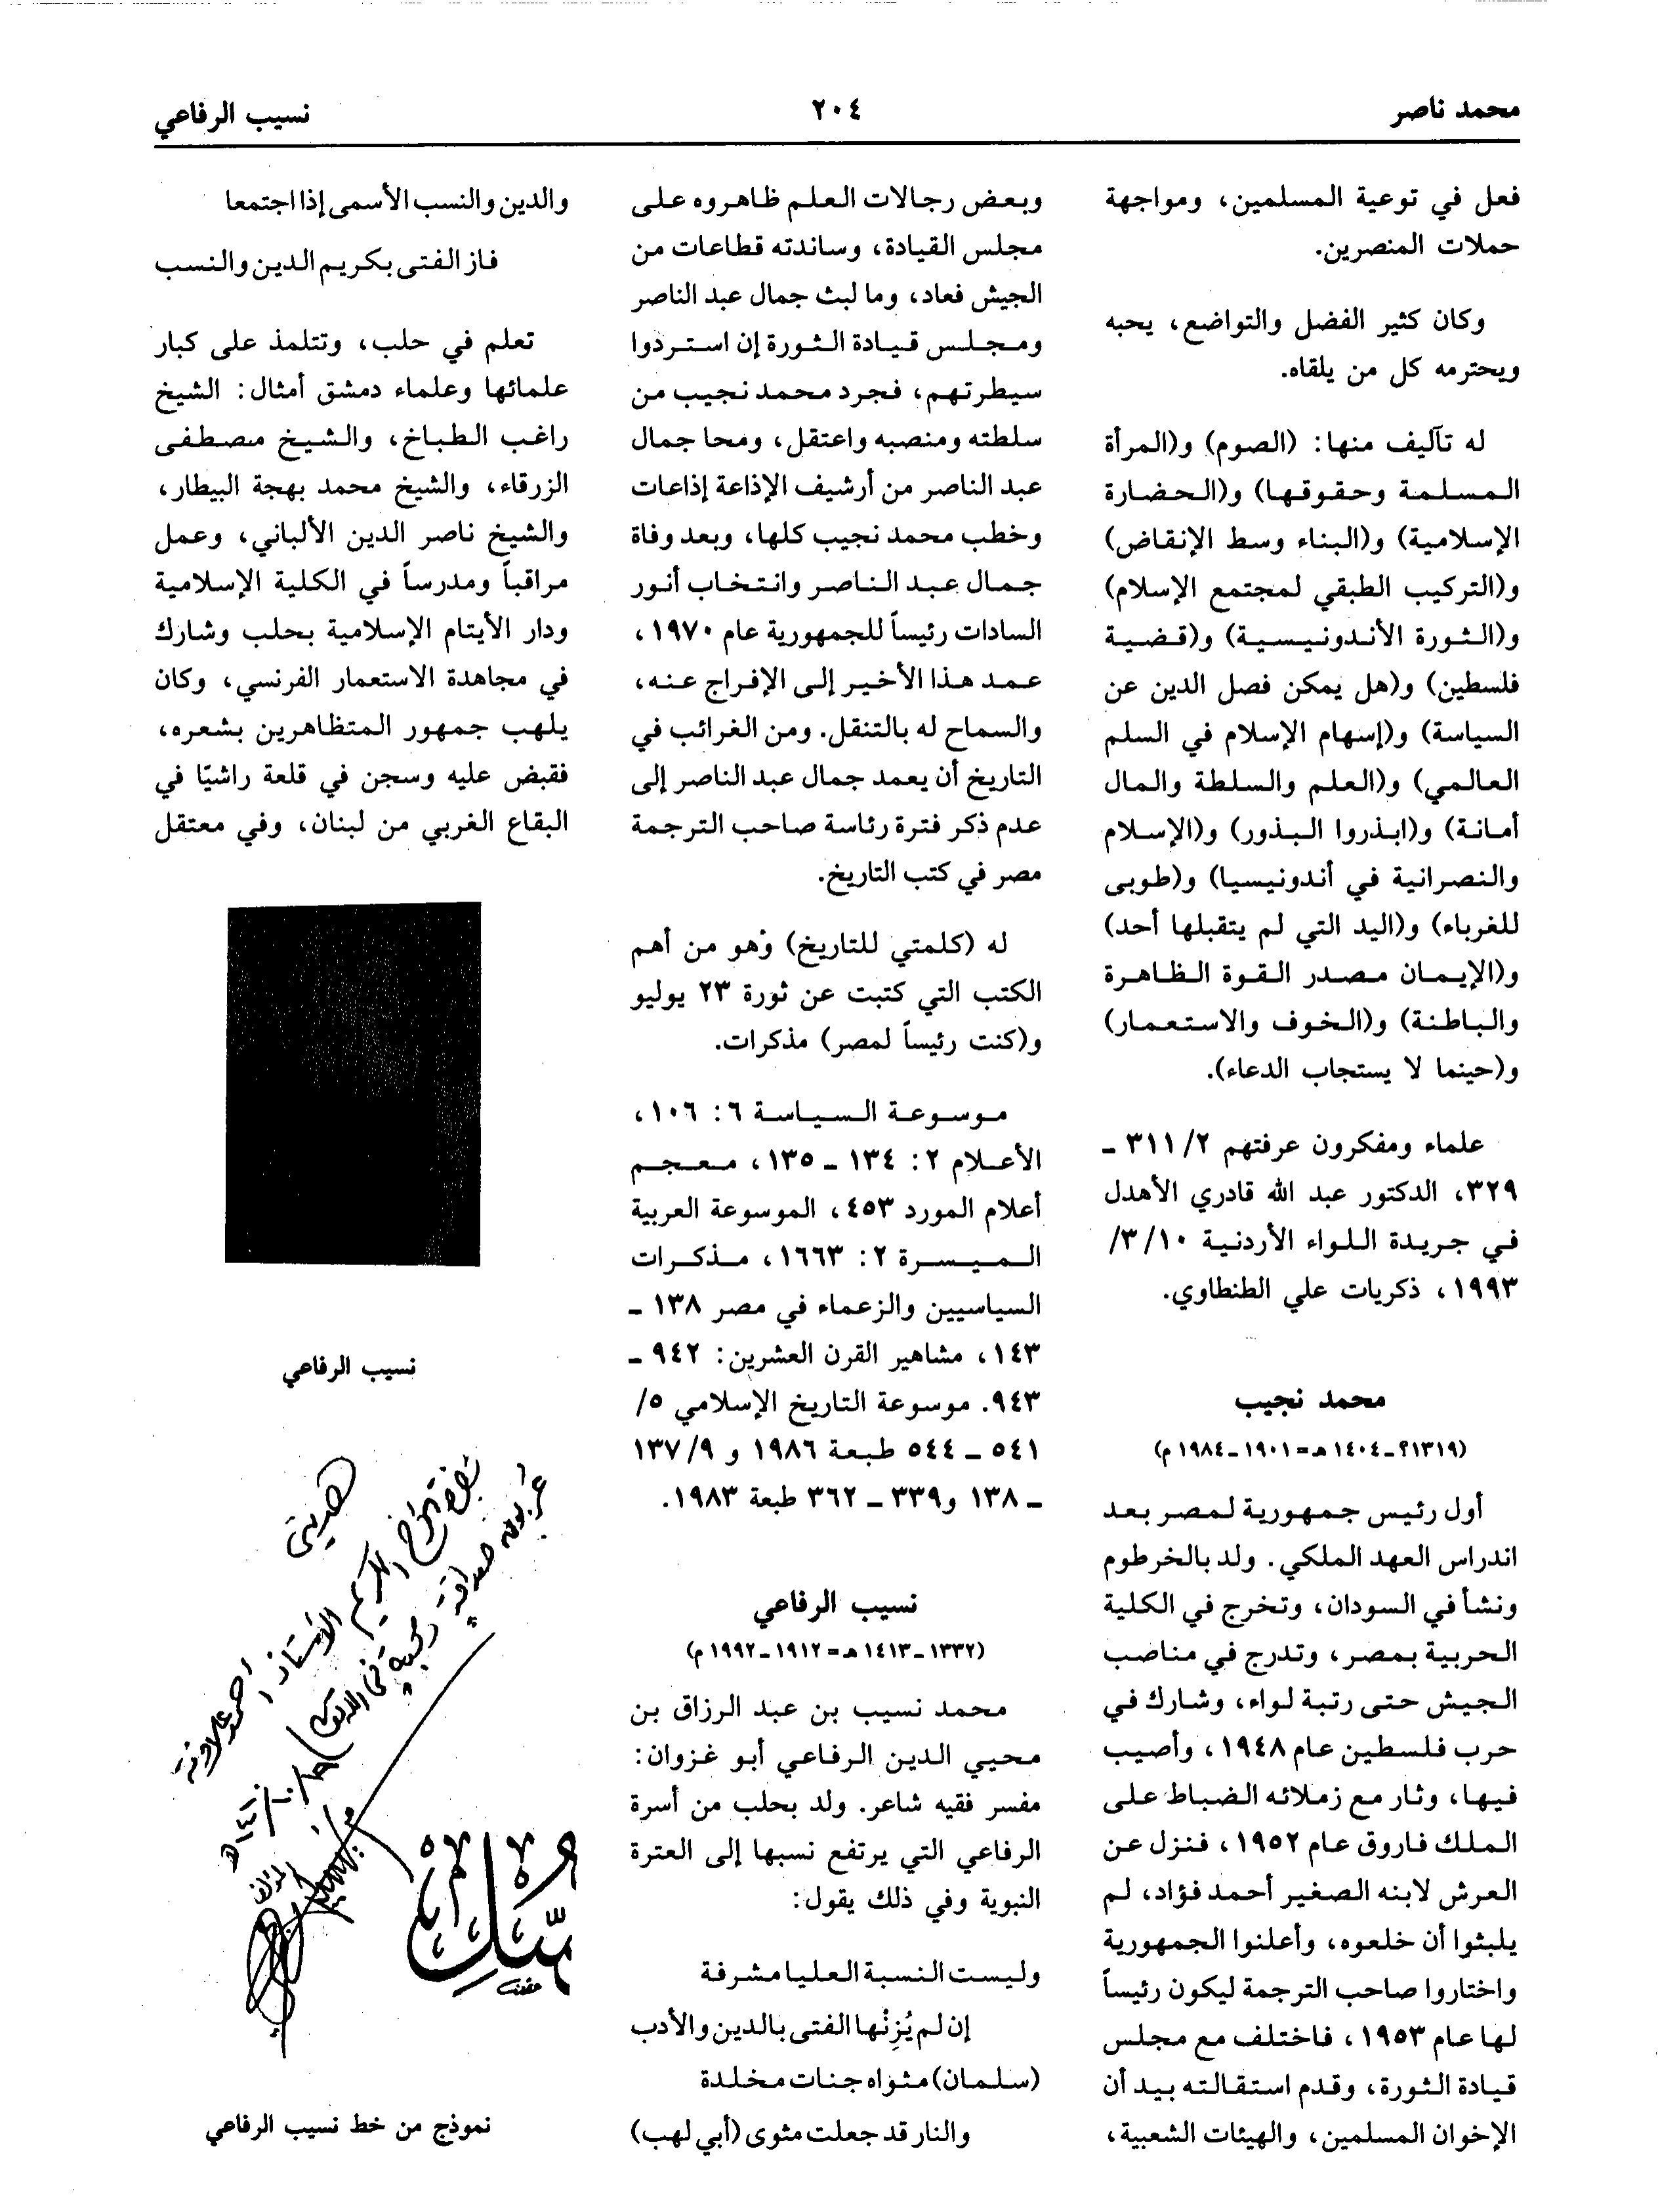 محمد ناصر
٢٠٤
نسيب الرفاعي
فعل في توعية المسلمين، ومواجهة
حملات المنصرين.
وكان كثير الفضل والتواضع، يحبه
ويحترمه كل من يلقاه.
له تآليف منها: (الصوم) و(المرأة
المسلمة وحقوقها) و(الحضارة
الإسلامية) و(البناء وسط الإنقاض)
و(التركيب الطبقي لمجتمع الإسلام)
و(الثورة الأندونيسية) و(قضية
فلسطين) و(هل يمكن فصل الدين عن
السياسة) و(إسهام الإسلام في السلم
العالمي) و(العلم والسلطة والمال
أمانة) و(ابذروا البذور) و(الإسلام
والنصرانية في أندونيسيا) و(طوبى
للغرباء) و(اليد التي لم يتقبلها أحد)
و(الإيمان مصدر القوة الظاهرة
والباطنة) و(الخوف والاستعمار)
و(حينما لا يستجاب الدعاء).
علماء ومفكرون عرفتهم ٢/ ٣١١ ـ
٣٢٩، الدكتور عبد الله قادري الأهدل
في جريدة اللواء الأردنية ١٠/ ٣/
١٩٩٣، ذكريات علي الطنطاوي.
محمد نجيب
(١٣١٩؟ ـ ١٤٠٤ هـ = ١٩٠١ ـ ١٩٨٤ م)
أول رئيس جمهورية لمصر بعد
اندراس العهد الملكي. ولد بالخرطوم
ونشأ في السودان، وتخرج في الكلية
الحربية بمصر، وتدرج في مناصب
الجيش حتى رتبة لواء، وشارك في
حرب فلسطين عام ١٩٤٨، وأصيب
فيها، وثار مع زملائه الضباط على
الملك فاروق عام ١٩٥٢، فنزل عن
العرش لابنه الصغير أحمد فؤاد، لم
يلبثوا أن خلعوه، وأعلنوا الجمهورية
واختاروا صاحب الترجمة ليكون رئيساً
لها عام ١٩٥٣، فاختلف مع مجلس
قيادة الثورة، وقدم استقالته بيد أن
الإخوان المسلمين، والهيئات الشعبية،
وبعض رجالات العلم ظاهروه على
مجلس القيادة، وساندته قطاعات من
الجيش فعاد، وما لبث جمال عبد الناصر
ومجلس قيادة الثورة إن استردوا
سيطرتهم، فجرد محمد نجيب من
سلطته ومنصبه واعتقل، ومحا جمال
عبد الناصر من أرشيف الإذاعة إذاعات
وخطب محمد نجيب كلها، وبعد وفاة
جمال عبد الناصر وانتخاب أنور
السادات رئيساً للجمهورية عام ١٩٧٠،
عمد هذا الأخير إلى الإفراج عنه،
والسماح له بالتنقل. ومن الغرائب في
التاريخ أن يعمد جمال عبد الناصر إلى
عدم ذكر فترة رئاسة صاحب الترجمة
مصر في كتب التاريخ.
له (كلمتي للتاريخ) وهو من أهم
الكتب التي كتبت عن ثورة ٢٣ يوليو
و(كنت رئيساً لمصر) مذكرات.
موسوعة السياسة ٦: ١٠٦،
الأعلام ٢: ١٣٤ ـ ١٣٥، معجم
أعلام المورد ٤٥٣، الموسوعة العربية
الميسرة ٢: ١٦٦٣، مذكرات
السياسيين والزعماء في مصر ١٣٨ ـ
١٤٣، مشاهير القرن العشرين: ٩٤٢ ـ
٩٤٣. موسوعة التاريخ الإسلامي ٥/
٥٤١ ـ ٥٤٤ طبعة ١٩٨٦ و ٩/ ١٣٧
ـ ١٣٨ و٣٣٩ ـ ٣٦٢ طبعة ١٩٨٣.
نسيب الرفاعي
(١٣٣٢ ـ ١٤١٣ هـ = ١٩١٢ ـ ١٩٩٢ م)
محمد نسيب بن عبد الرزاق بن
محيي الدين الرفاعي أبو غزوان:
مفسر فقيه شاعر. ولد بحلب من أسرة
الرفاعي التي يرتفع نسبها إلى العترة
النبوية وفي ذلك يقول:
وليست النسبة العليا مشرفة
إن لم يُزِنْها الفتى بالدين والأدب
(سلمان) مثواه جنات مخلدة
والنار قد جعلت مثوى (أبي لهب)
والدين والنسب الأسمى إذا اجتمعا
فاز الفتى بكريم الدين والنسب
تعلم في حلب، وتتلمذ على كبار
علمائها وعلماء دمشق أمثال: الشيخ
راغب الطباخ، والشيخ مصطفى
الزرقاء، والشيخ محمد بهجة البيطار،
والشيخ ناصر الدين الألباني، وعمل
مراقباً ومدرساً في الكلية الإسلامية
ودار الأيتام الإسلامية بحلب وشارك
في مجاهدة الاستعمار الفرنسي، وكان
يلهب جمهور المتظاهرين بشعره،
فقبض عليه وسجن في قلعة راشيّا في
البقاع الغربي من لبنان، وفي معتقل
نسيب الرفاعي
هديتي
الكريم الأستاذ أحمد علاونة
عربون صداقة
المؤلف
نموذج من خط نسيب الرفاعي